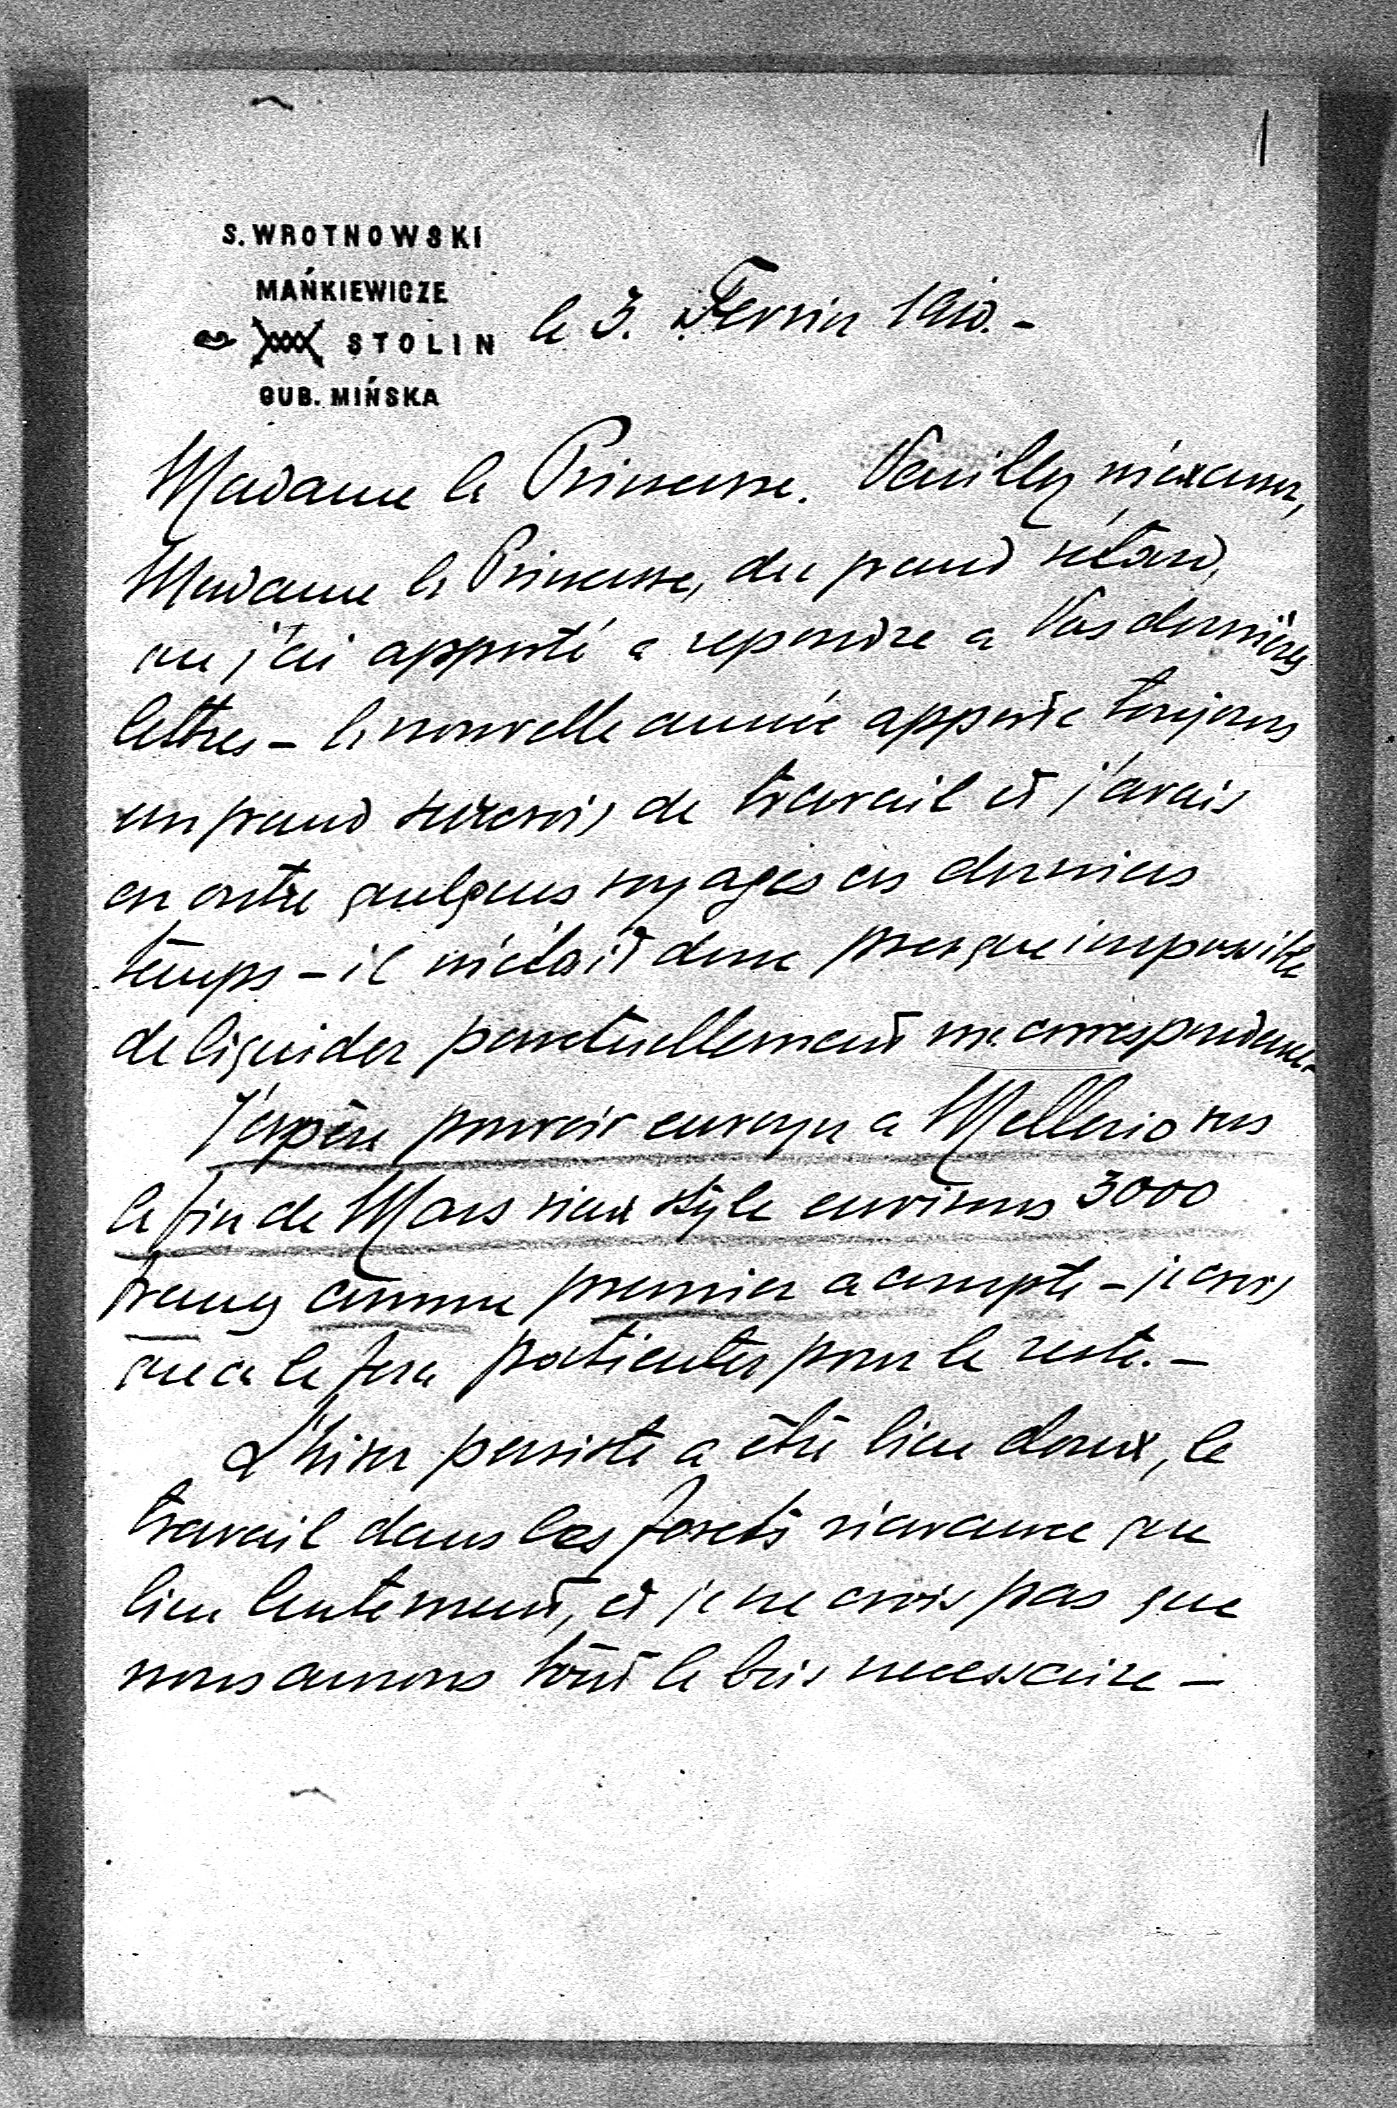 1
S. WROTNOWSKI
MAŃKIEWICZE
STOLIN
GUB. MIŃSKA
le 3. Fevrier 1910. -
Madame la Princesse. Veuillez m'excuser,
Madame la Princesse, du grand rétard,
que j'ai apporté a repondre a Vos dernières
lettres - la nouvelle année apporte toujours
un grand surcrois de travail et j'avais
en outre quelques voyages ces derniers
temps - il m'était donc presque impossible
de liquider ponctuellement ma correspondance.
J'espère pouvoir envoyer a Mellerio vers
la fin de Mars vieux style environs 3000
francs comme premier acompte - je crois
que ca le fera patienter pour le reste. -
L'hiver persiste a être bien doux, le
travail dans les forets n'avance que
bien lentement, et je ne crois pas que
nous aurons tout le bois necessaire -